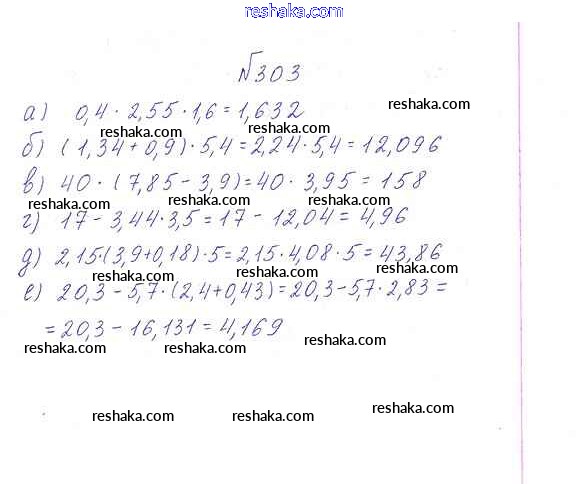 reshaka.com
№303
а) 0,4 · 2,55 · 1,6 = 1,632
reshaka.com
reshaka.com reshaka.com
б) (1,34 + 0,9) · 5,4 = 2,24 · 5,4 = 12,096
в) 40 · (7,85 - 3,9) = 40 · 3,95 = 158
reshaka.com reshaka.com reshaka.com
г) 17 - 3,44 · 3,5 = 17 - 12,04 = 4,96
д) 2,15 · (3,9 + 0,18) · 5 = 2,15 · 4,08 · 5 = 43,86
reshaka.com reshaka.com reshaka.com
е) 20,3 - 5,7 · (2,4 + 0,43) = 20,3 - 5,7 · 2,83 =
= 20,3 - 16,131 = 4,169
reshaka.com reshaka.com reshaka.com
reshaka.com reshaka.com reshaka.com